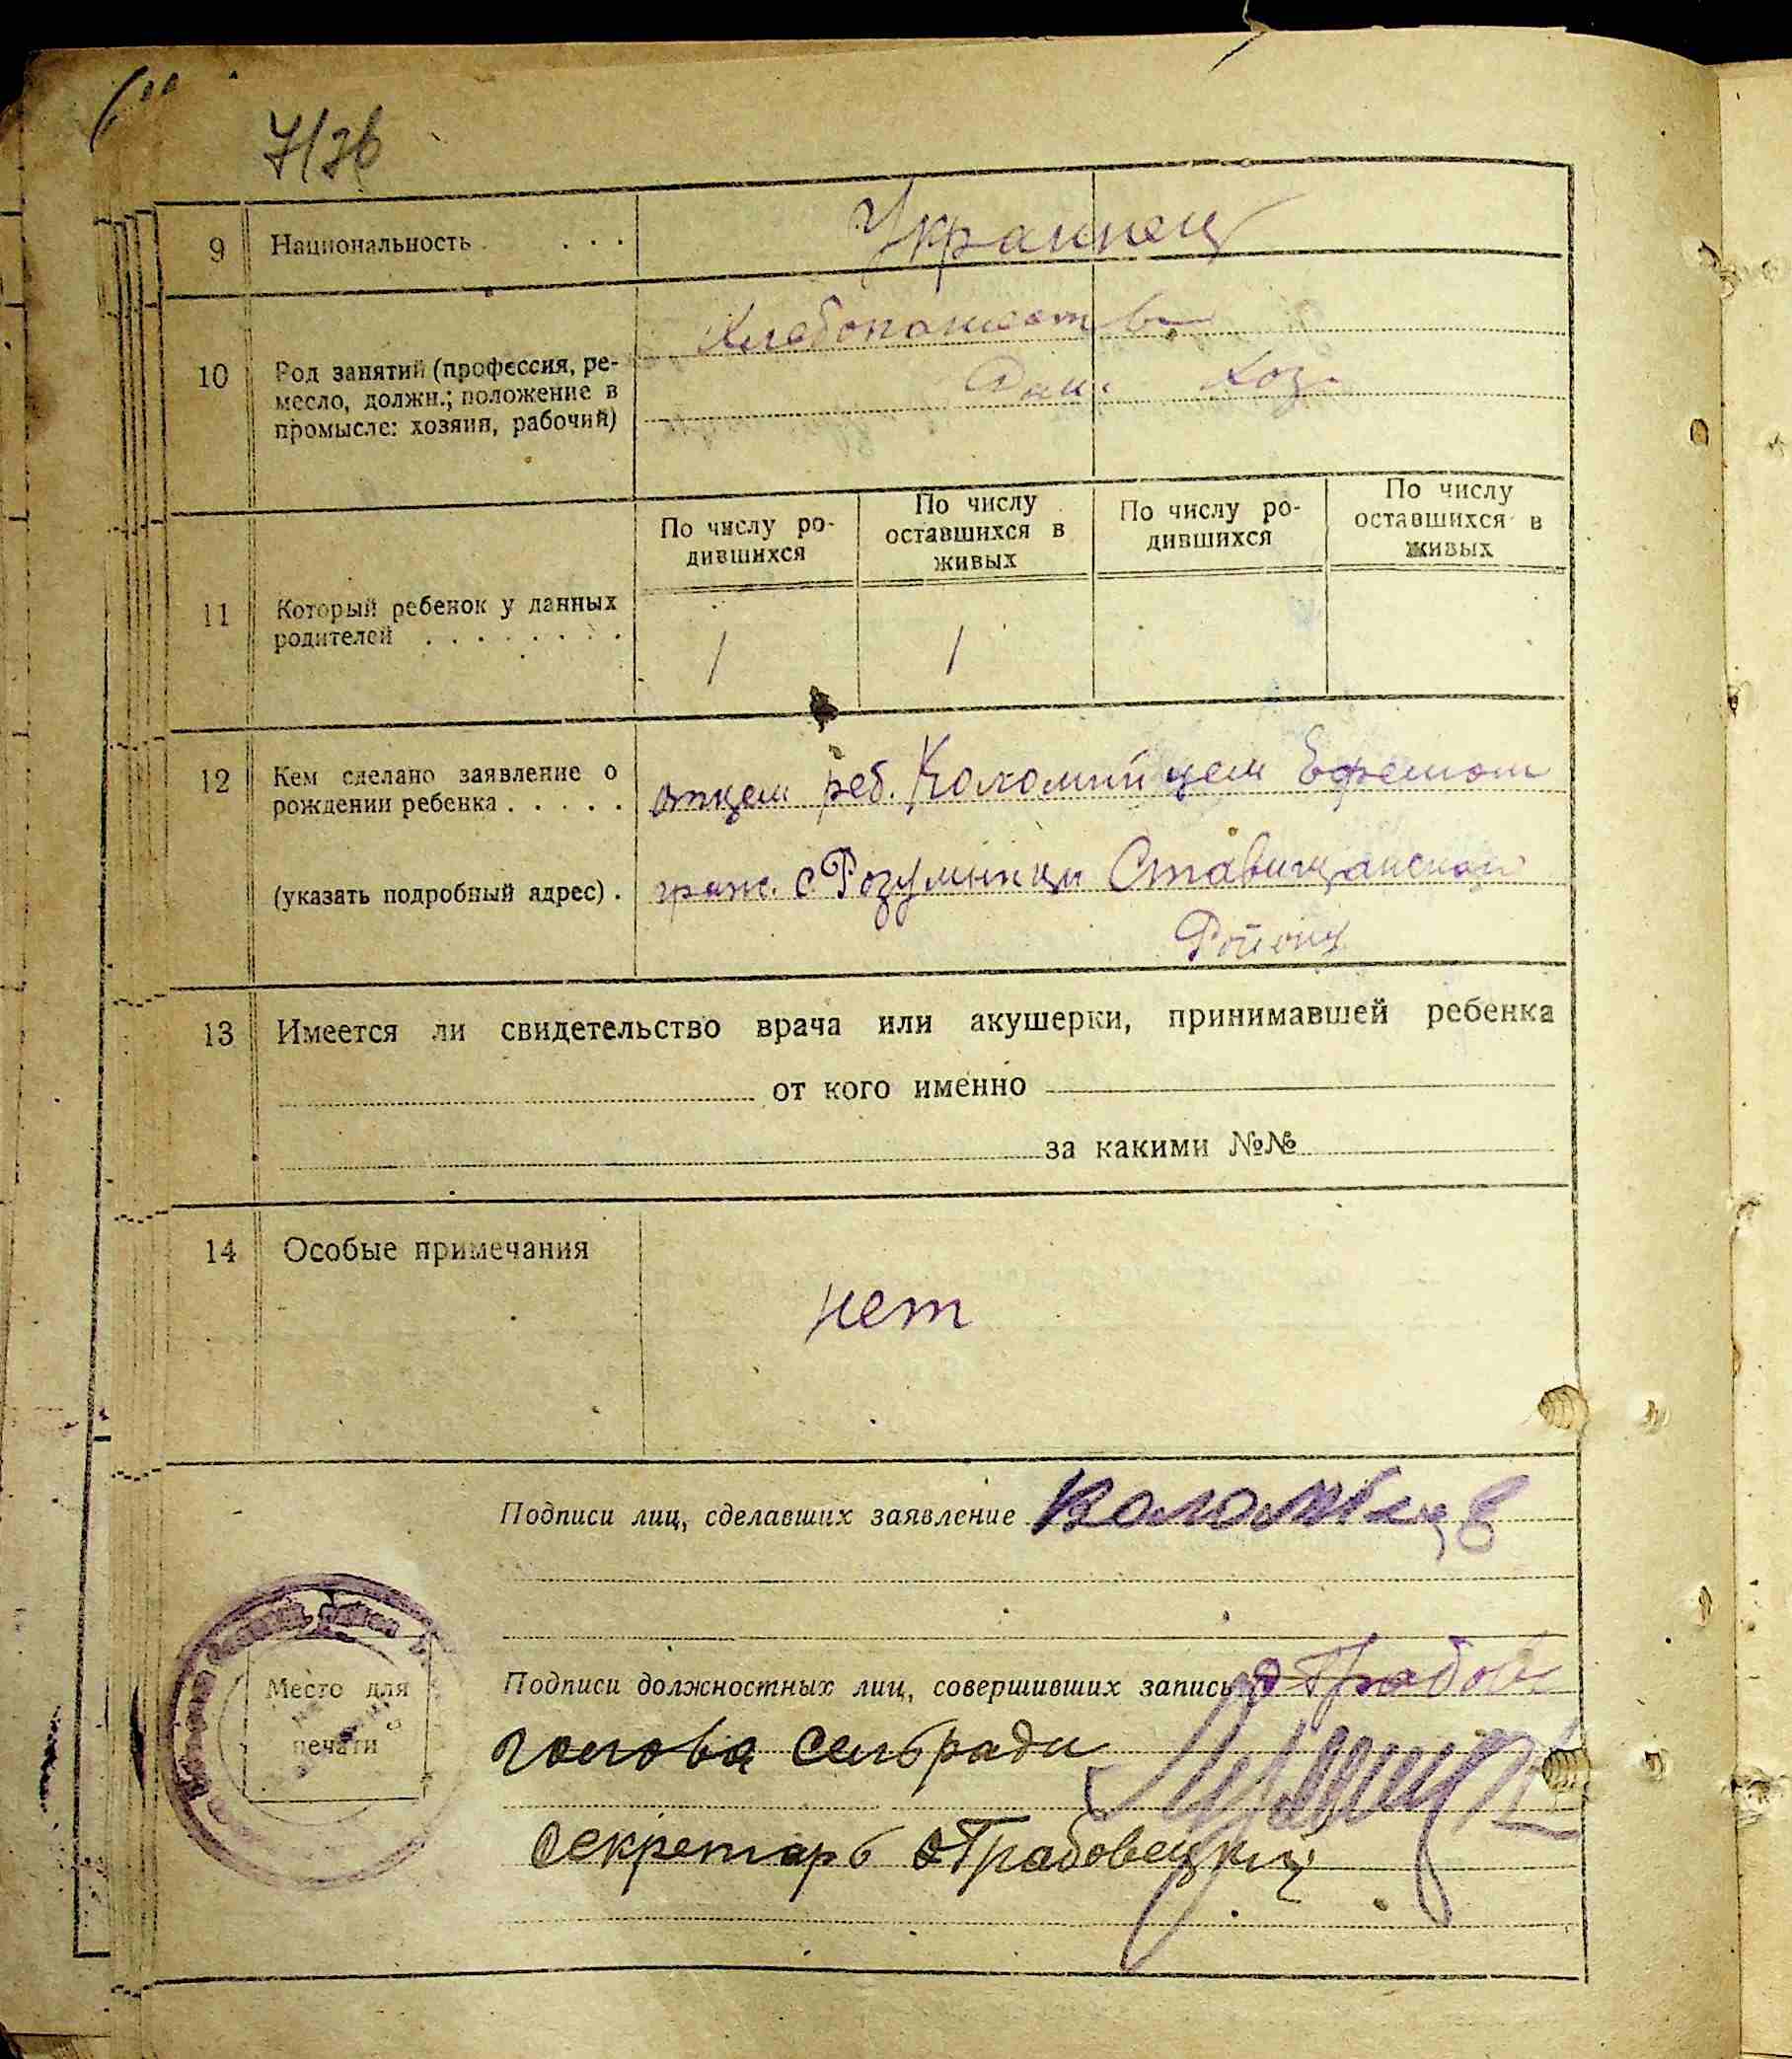 7/36
9 Национальность . . . . Украинец
10 Род занятий (профессия, ре-
месло, должн.; положение в
промысле: хозяин, рабочий)
Хлебопашество
хоз.
По числу ро-
дившихся
По числу
оставшихся в
живых
По числу ро-
дившихся
По числу
оставшихся в
живых
11 Который ребенок у данных
родителей . . . . . . . .
1 1
12 Кем сделано заявление о
рождении ребенка . . . . .
отцем реб. Коломийцем Ефремом
(указать подробный адрес) . граж. с. Розумницы Ставищанского
Район
13 Имеется ли свидетельство врача или акушерки, принимавшей ребенка
от кого именно
за какими №№
14 Особые примечания
нет
Подписи лиц, сделавших заявление
Подписи должностных лиц, совершивших запись Грабов
голова сельради
Секретарь Грабовецкий
Место для
печати